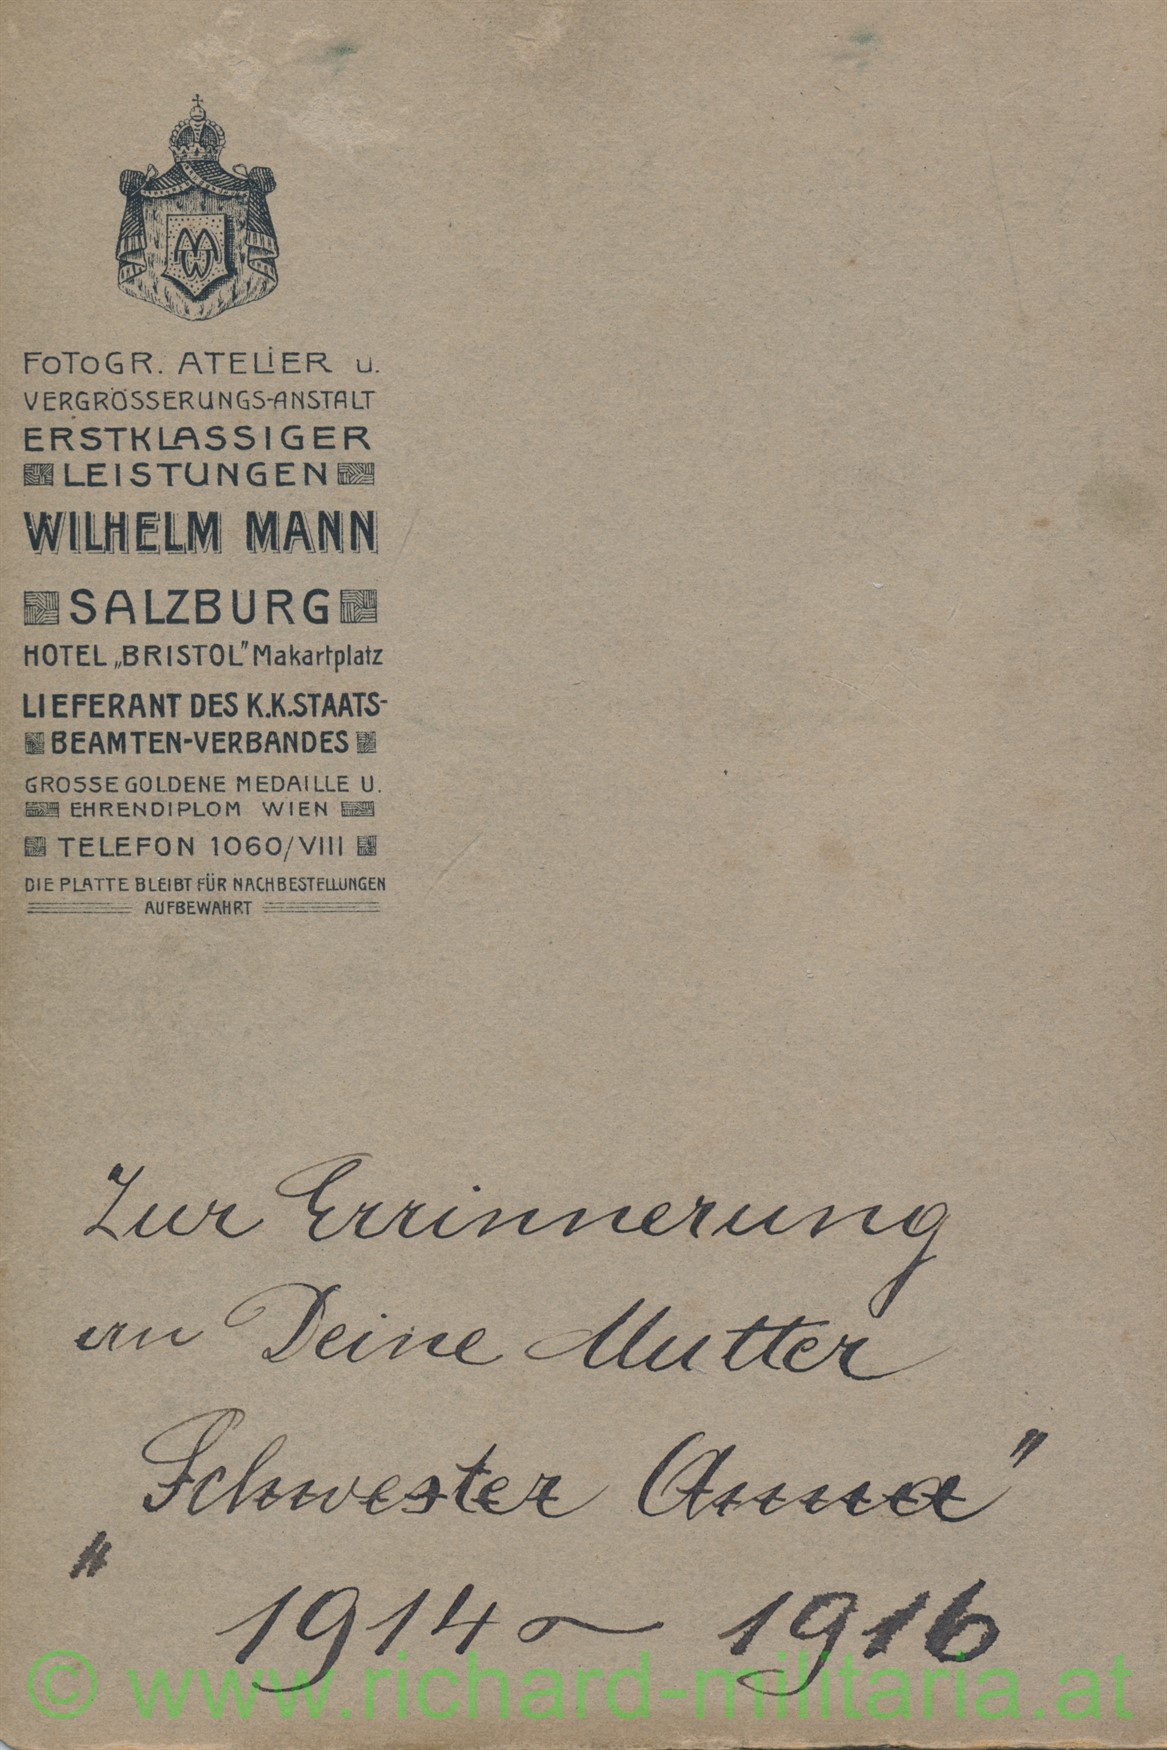 MW
FOTOGR. ATELIER u.
VERGRÖSSERUNGS-ANSTALT
ERSTKLASSIGER
LEISTUNGEN
WILHELM MANN
SALZBURG
HOTEL „BRISTOL" Makartplatz
LIEFERANT DES K.K. STAATS-
BEAMTEN-VERBANDES
GROSSE GOLDENE MEDAILLE U.
EHRENDIPLOM WIEN
TELEFON 1060/VIII
DIE PLATTE BLEIBT FÜR NACHBESTELLUNGEN
AUFBEWAHRT
Zur Errinnerung
an Deine Mutter
„Schwester Anna"
1914 ~ 1916
© www.richard-militaria.at